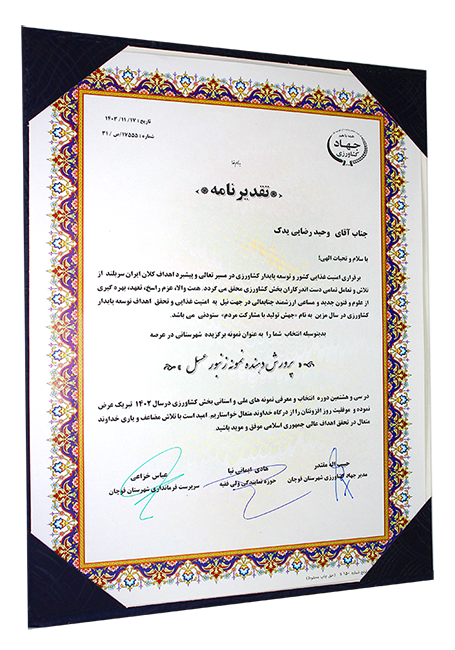 تاریخ : ۱۴۰۳/۱۱/۱۷
شماره : ۱۷۵۵۵/ص/۳۱
جهاد
کشاورزی
بنام خدا
تقدیرنامه
جناب آقای وحید رضایی یدک
با سلام و تحیات الهی؛
برقراری امنیت غذایی کشور و توسعه پایدار کشاورزی در مسیر تعالی و پیشبرد اهداف کلان ایران سربلند از
تلاش و تعامل تمامی دست اندرکاران بخش کشاورزی محقق می گردد. همت والا، عزم راسخ، تعهد، بهره گیری
از علوم و فنون جدید و مساعی ارزشمند جنابعالی در جهت نیل به امنیت غذایی و تحقق اهداف توسعه پایدار
کشاورزی در سال مزین به نام «جهش تولید با مشارکت مردم» ستودنی می باشد.
بدینوسیله انتخاب شما را به عنوان نمونه برگزیده شهرستانی در عرصه
پرورش دهنده نمونه زنبور عسل
در سی و هشتمین دوره انتخاب و معرفی نمونه های ملی و استانی بخش کشاورزی در سال ۱۴۰۲ تبریک عرض
نموده و موفقیت روز افزونتان را از درگاه خداوند متعال خواستاریم. امید است با تلاش مضاعف و یاری خداوند
متعال در تحقق اهداف عالی جمهوری اسلامی موفق و موید باشید
حبیب اله مقتدر
مدیر جهاد کشاورزی شهرستان قوچان
هادی ایمانی نیا
حوزه نمایندگی ولی فقیه
عباس خزاعی
سرپرست فرمانداری شهرستان قوچان